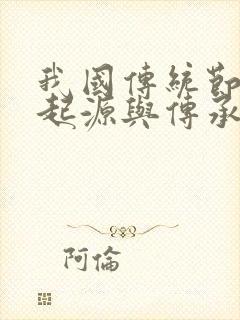 我國傳統節
起源與傳承
阿倫